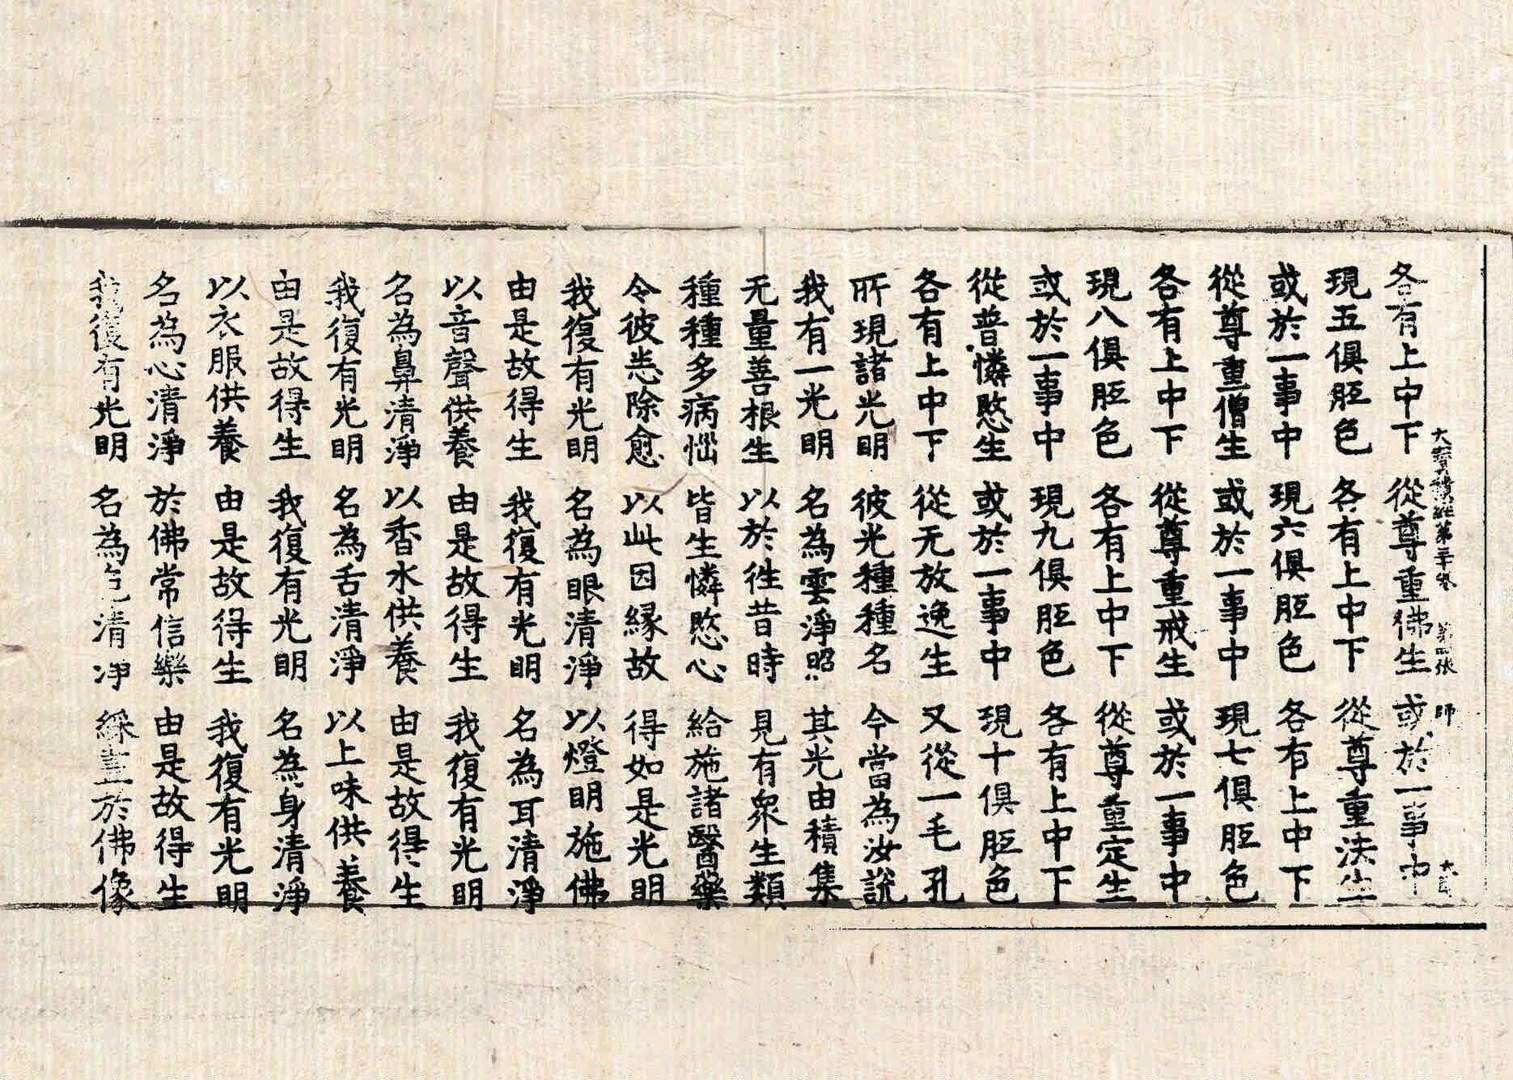 大寶積經第三十卷 第四張 師
各有上中下 從尊重佛生 或於一事中
現五俱胝色 各有上中下 從尊重法生
或於一事中 現六俱胝色 各有上中下
從尊重僧生 或於一事中 現七俱胝色
各有上中下 從尊重戒生 或於一事中
現八俱胝色 各有上中下 從尊重定生
或於一事中 現九俱胝色 各有上中下
從普憐愍生 或於一事中 現十俱胝色
各有上中下 從无放逸生 又從一毛孔
所現諸光明 彼光種種名 今當為汝說
我有一光明 名為雲淨照 其光由積集
无量善根生 以於徃昔時 見有衆生類
種種多病惱 皆生憐愍心 給施諸醫藥
令彼恙除愈 以此因緣故 得如是光明
我復有光明 名為眼清淨 以燈明施佛
由是故得生 我復有光明 名為耳清淨
以音聲供養 由是故得生 我復有光明
名為鼻清淨 以香水供養 由是故得生
我復有光明 名為舌清淨 以上味供養
由是故得生 我復有光明 名為身清淨
以衣服供養 由是故得生 我復有光明
名為心清淨 於佛常信樂 由是故得生
我復有光明 名為色清淨 綵畫於佛像